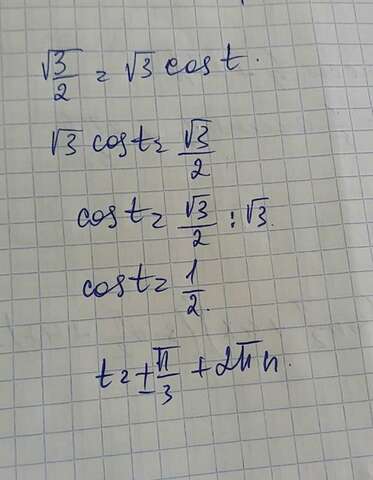 √3/2 = √3 cos t.
√3 cos t = √3/2
cos t = √3/2 : √3.
cos t = 1/2.
t = ±π/3 + 2πn.